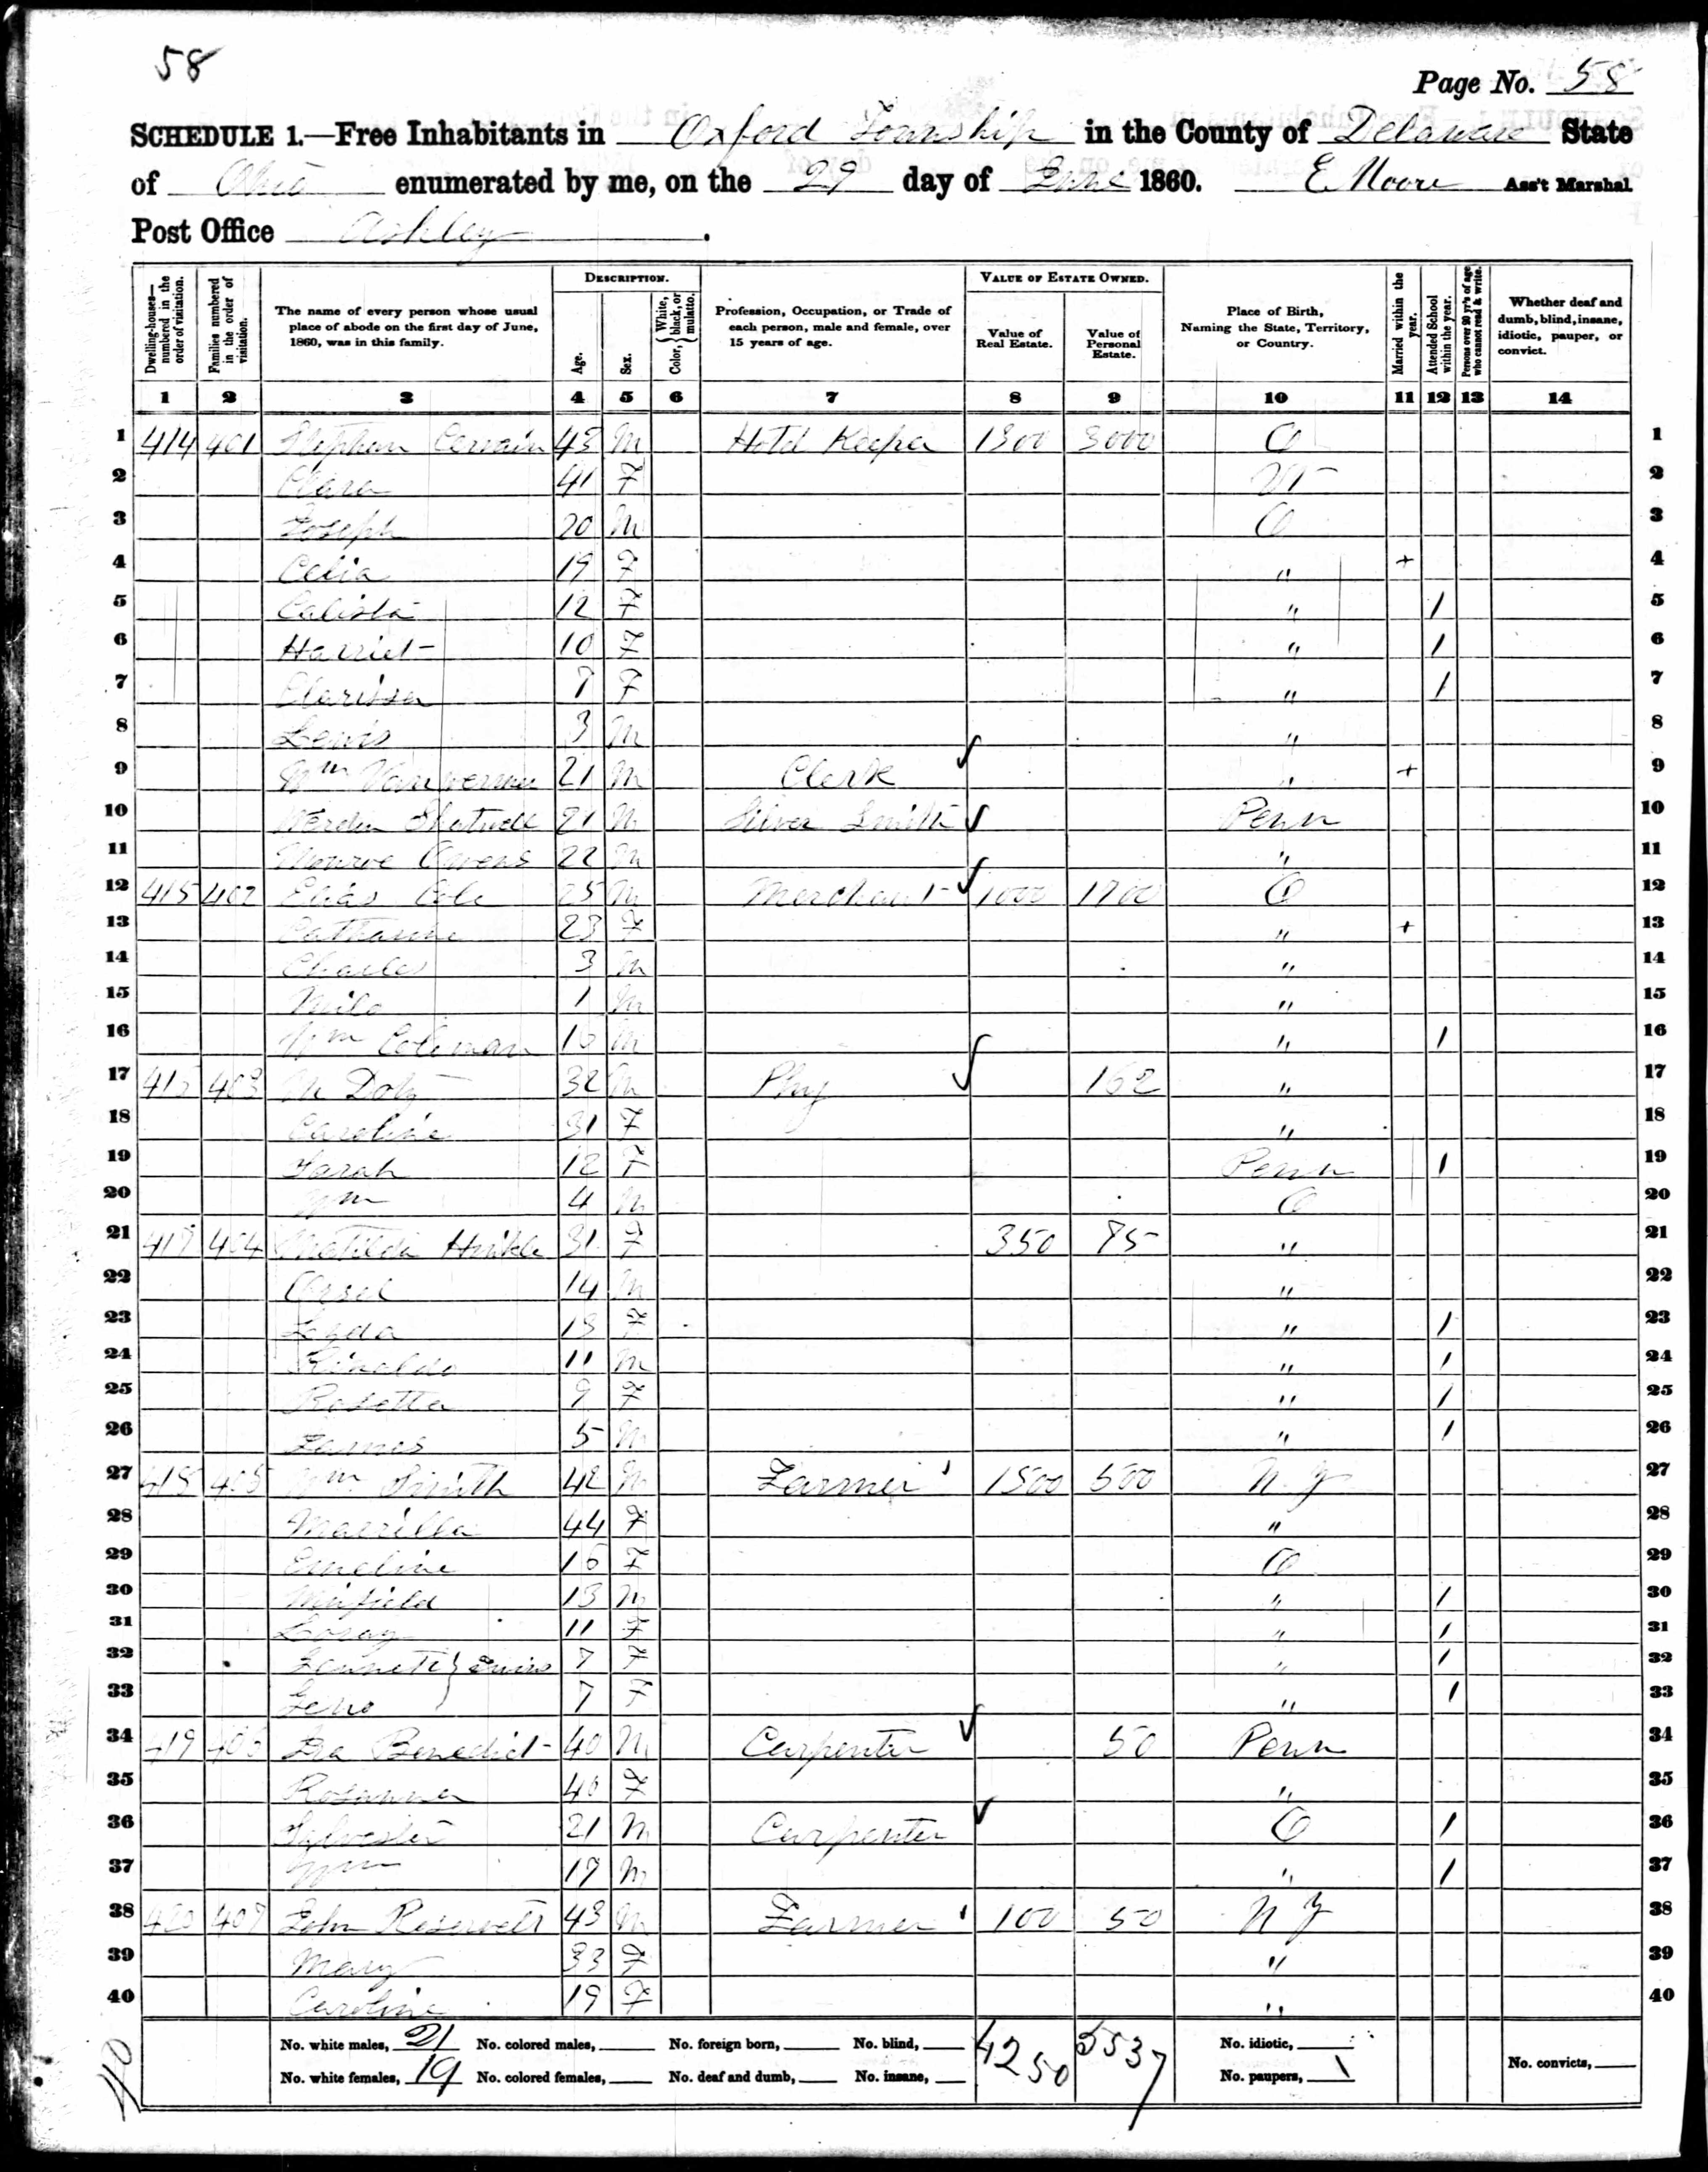 58
Page No. 58
SCHEDULE 1.—Free Inhabitants in Oxford Township in the County of Delaware State
of Ohio enumerated by me, on the 29 day of June 1860. E. Moore Ass't Marshal.
Post Office Ashley.
Dwelling-houses—numbered in the order of visitation. Families numbered in the order of visitation. The name of every person whose usual place of abode on the first day of June, 1860, was in this family. DESCRIPTION. Age. Sex. Color, {White, black, or mulatto. Profession, Occupation, or Trade of each person, male and female, over 15 years of age. VALUE OF ESTATE OWNED. Value of Real Estate. Value of Personal Estate. Place of Birth, Naming the State, Territory, or Country. Married within the year. Attended School within the year. Persons over 20 y'rs of age who cannot read & write. Whether deaf and dumb, blind, insane, idiotic, pauper, or convict.
1 2 3 4 5 6 7 8 9 10 11 12 13 14
1 414 401 Stephen 43 M Hotel Keeper 1300 3000 O 1
2 Clara 41 F Vt 2
3 Joseph 20 M O 3
4 Celia 19 F " + 4
5 Calista 12 F " 1 5
6 Harriet 10 F " 1 6
7 Clarissa 7 F " 1 7
8 Lewis 3 M " 8
9 Wm 21 M Clerk " + 9
10 Shotwell 21 M Silver Smith Penn 10
11 Monroe Owens 22 M " 11
12 415 402 Elias Cole 25 M Merchant 1000 1700 O 12
13 Catharine 23 F " + 13
14 Charles 3 M " 14
15 Milo 1 M " 15
16 Wm Coleman M " 1 16
17 403 M Doty 32 M Phy 162 " 17
18 Caroline 31 F " 18
19 Sarah 12 F Penn 1 19
20 Wm 4 M O 20
21 417 404 Matilda Hinkle 31 F 350 75 " 21
22 14 M " 22
23 13 F " 1 23
24 Rinaldo 11 M " 1 24
25 Rosetta 9 F " 1 25
26 James 5 M " 1 26
27 418 405 Wm Smith 42 M Farmer 1500 500 N J 27
28 Marrilla 44 F " 28
29 Emeline 16 F O 29
30 13 M " 1 30
31 11 F " 1 31
32 Jennett } Twins 7 F " 1 32
33 7 F " 1 33
34 419 406 Ira Benedict 40 M Carpenter 50 Penn 34
35 Rosanna 40 F " 35
36 Sylvester 21 M Carpenter O 1 36
37 Wm 19 M " 1 37
38 420 407 John 43 M Farmer 100 50 N J 38
39 Mary 33 F " 39
40 Caroline 19 F " 40
No. white males, 21 No. colored males, No. foreign born, No. blind, 4250 5537 No. idiotic,
No. white females, 19 No. colored females, No. deaf and dumb, No. insane, No. paupers, No. convicts,
40